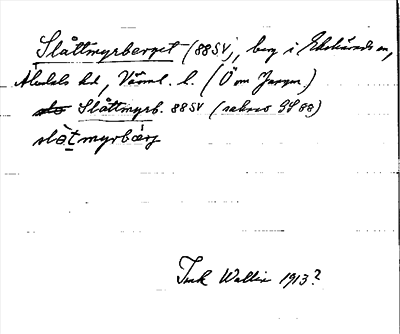 Slåttmyrberget (88SV), berg i Ekshärads sn,
Älvdals hd, Värml. l. (Ö om Jangen.)
Slåttmyrb. 88SV (saknas GS 88)
slåtmyrbærj
Torsk Wallin 1913?